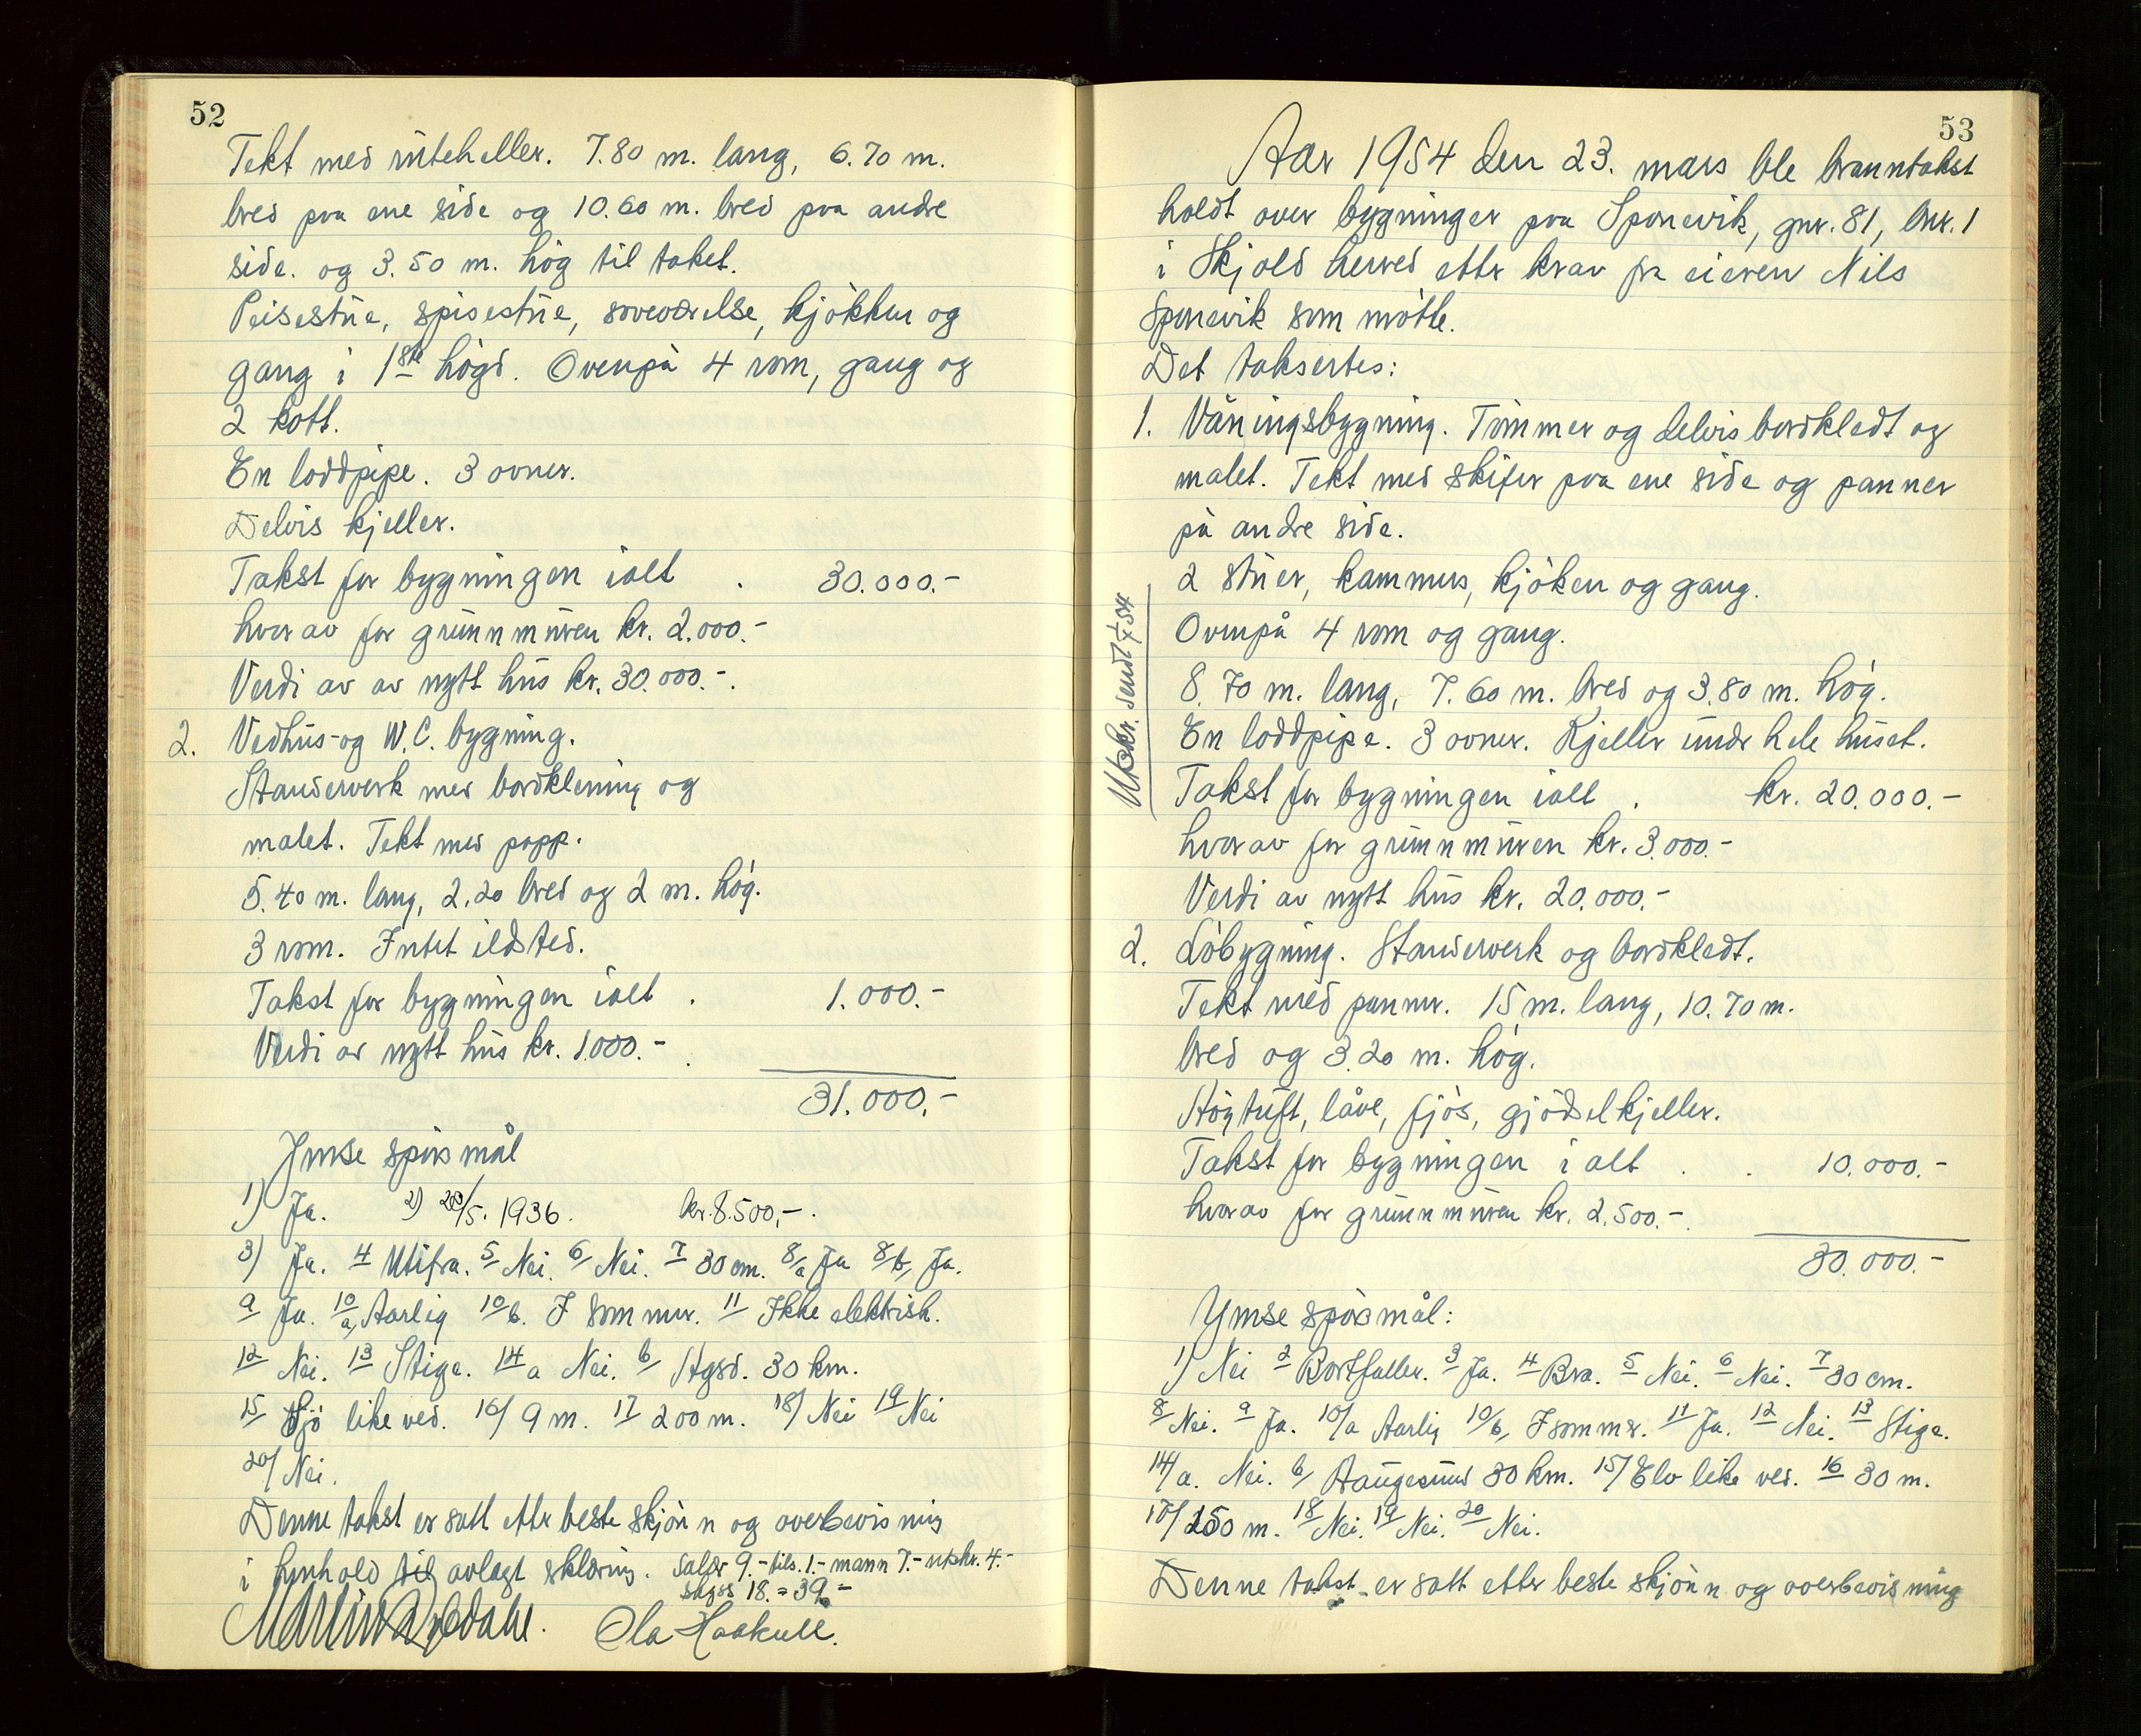 52
Tekt med uteheller. 7.80 m. lang, 6.70 m.
bred paa ene side og 10.60 m. bred paa andre
side. og 3.50 m. høg til taket.
Peisestue, spisestue, soveværelse, kjøkken og
gang i 1ste høgd. Ovenpå 4 rom, gang og
2 kott.
En loddpipe. 3 ovner.
Delvis kjeller.
Takst for bygningen ialt . 30.000.-
hvorav for grunnmuren kr. 2.000.-
Verdi av av nytt hus kr. 30.000.-.
2. Vedhus- og W.C. bygning.
Standerverk med bordkledning og
malet. Tekt med papp.
5.40 m. lang, 2.20 bred og 2 m. høg.
3 rom. Intet ildsted.
Takst for bygningen ialt . 1.000.-
Verdi av nytt hus kr. 1.000.-.
31.000.-
Ymse spørsmål
1) Ja. 2) 28/5. 1936. kr. 8.500,-.
3) Ja. 4 Utifra. 5 Nei. 6/ Nei. 7 30 cm. 8/a Ja 8/b, Ja.
9 Ja. 10 a, Aarlig 10 b. I sommer. 11 Ikke elektrisk.
12 Nei. 13 Stige. 14 a Nei. b/ Hgsd. 30 km.
15 Sjø like ved. 16/ 9 m. 17 200 m. 18/ Nei 19 Nei
20/ Nei.
Denne takst er satt etter beste skjønn og overbevisning
i henhold til avlagt erklæring. Salær 9.- tils. 1.- mann 7.- utskr. 4.-
skyss 18. = 39.-
Ola Haakull.
53
Aar 1954 den 23. mars ble branntakst
holdt over bygninger paa Sponevik, gnr. 81, bnr. 1
i Skjold herred etter krav fra eieren Nils
Sponevik som møtte.
Det taksertes:
1. Våningsbygning. Tømmer og delvis bordkledt og
malet. Tekt med skifer paa ene side og panner
på andre side.
2 stuer, kammers, kjøken og gang.
Ovenpå 4 rom og gang.
8.70 m. lang, 7.60 m. bred og 3.80 m. høg.
En loddpipe. 3 ovner. Kjeller under hele huset.
Takst for bygningen ialt . kr. 20.000.-
hvorav for grunnmuren kr. 3.000.-
Verdi av nytt hus kr. 20.000.-
Utskr. sendt 1/7 54
2. Løbygning. Standerverk og bordkledt.
Tekt med panner. 15 m. lang, 10.70 m.
bred og 3.20 m. høg.
Høytuft, låve, fjøs, gjødselkjeller.
Takst for bygningen i alt . . 10.000.-
hvorav for grunnmuren kr. 2.500.-.
30.000.-
Ymse spørsmål:
1) Nei 2 Bortfaller. 3 Ja. 4 Bra. 5 Nei. 6 Nei. 7 30 cm.
8/ Nei. 9 Ja. 10/a Aarlig 10/b, I sommer. 11 Ja. 12 Nei. 13 Stige.
14/ a. Nei. b/ Haugesund 30 km. 15/ Elv like ved. 16 30 m.
17/ 150 m. 18 Nei. 19 Nei. 20 Nei.
Denne takst er satt etter beste skjønn og overbevisning